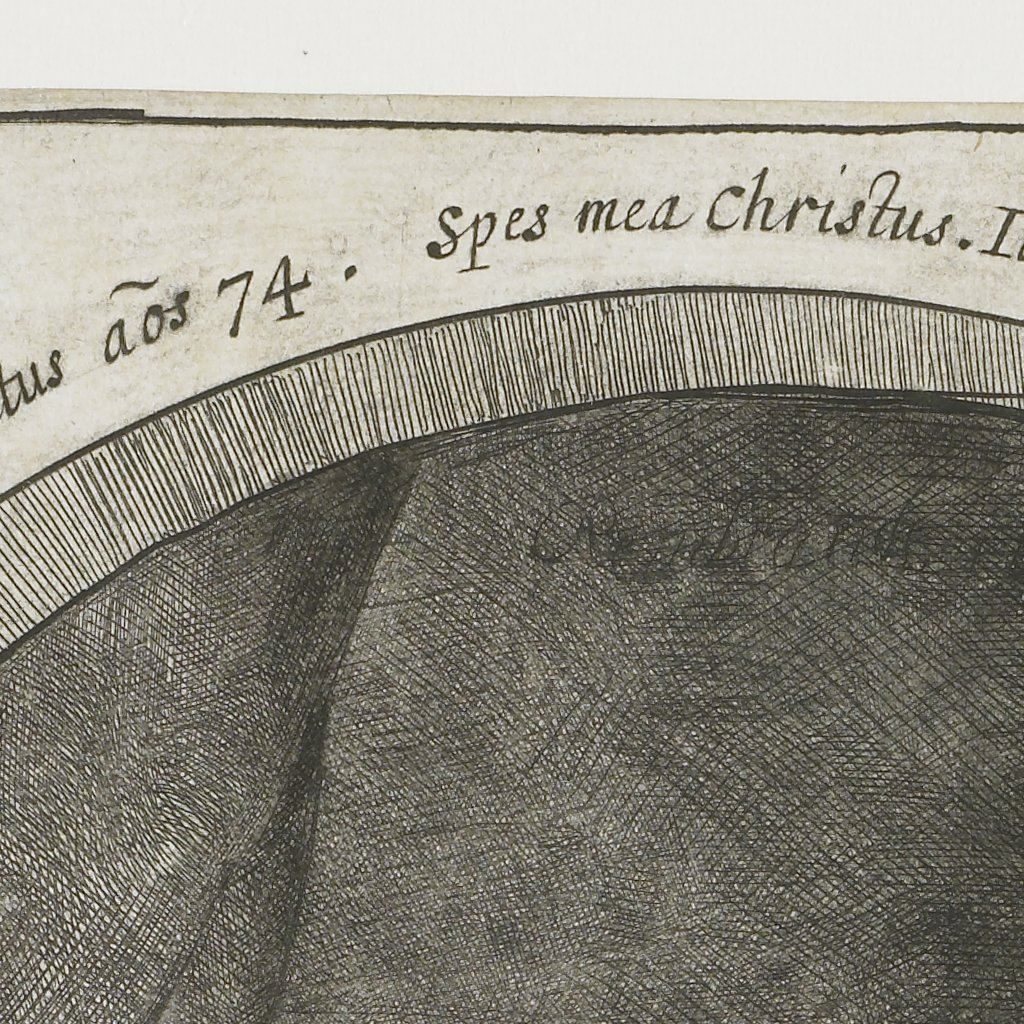 tus aõs 74. Spes mea Christus. I